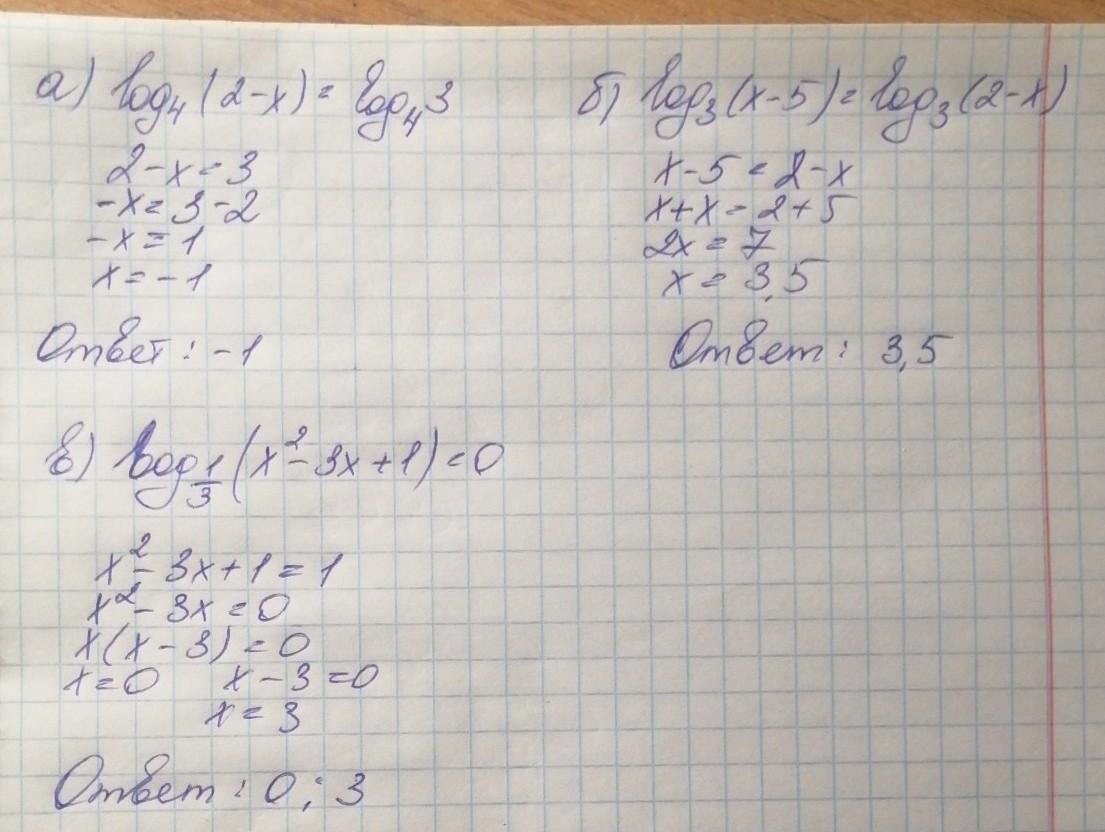 а) log₄(2-x)=log₄3
2-x=3
-x=3-2
-x=1
x=-1
Ответ: -1
б) log₃(x-5)=log₃(2-x)
x-5=2-x
x+x=2+5
2x=7
x=3,5
Ответ: 3,5
в) log_{1/3}(x²-3x+1)=0
x²-3x+1=1
x²-3x=0
x(x-3)=0
x=0 x-3=0
x=3
Ответ: 0; 3